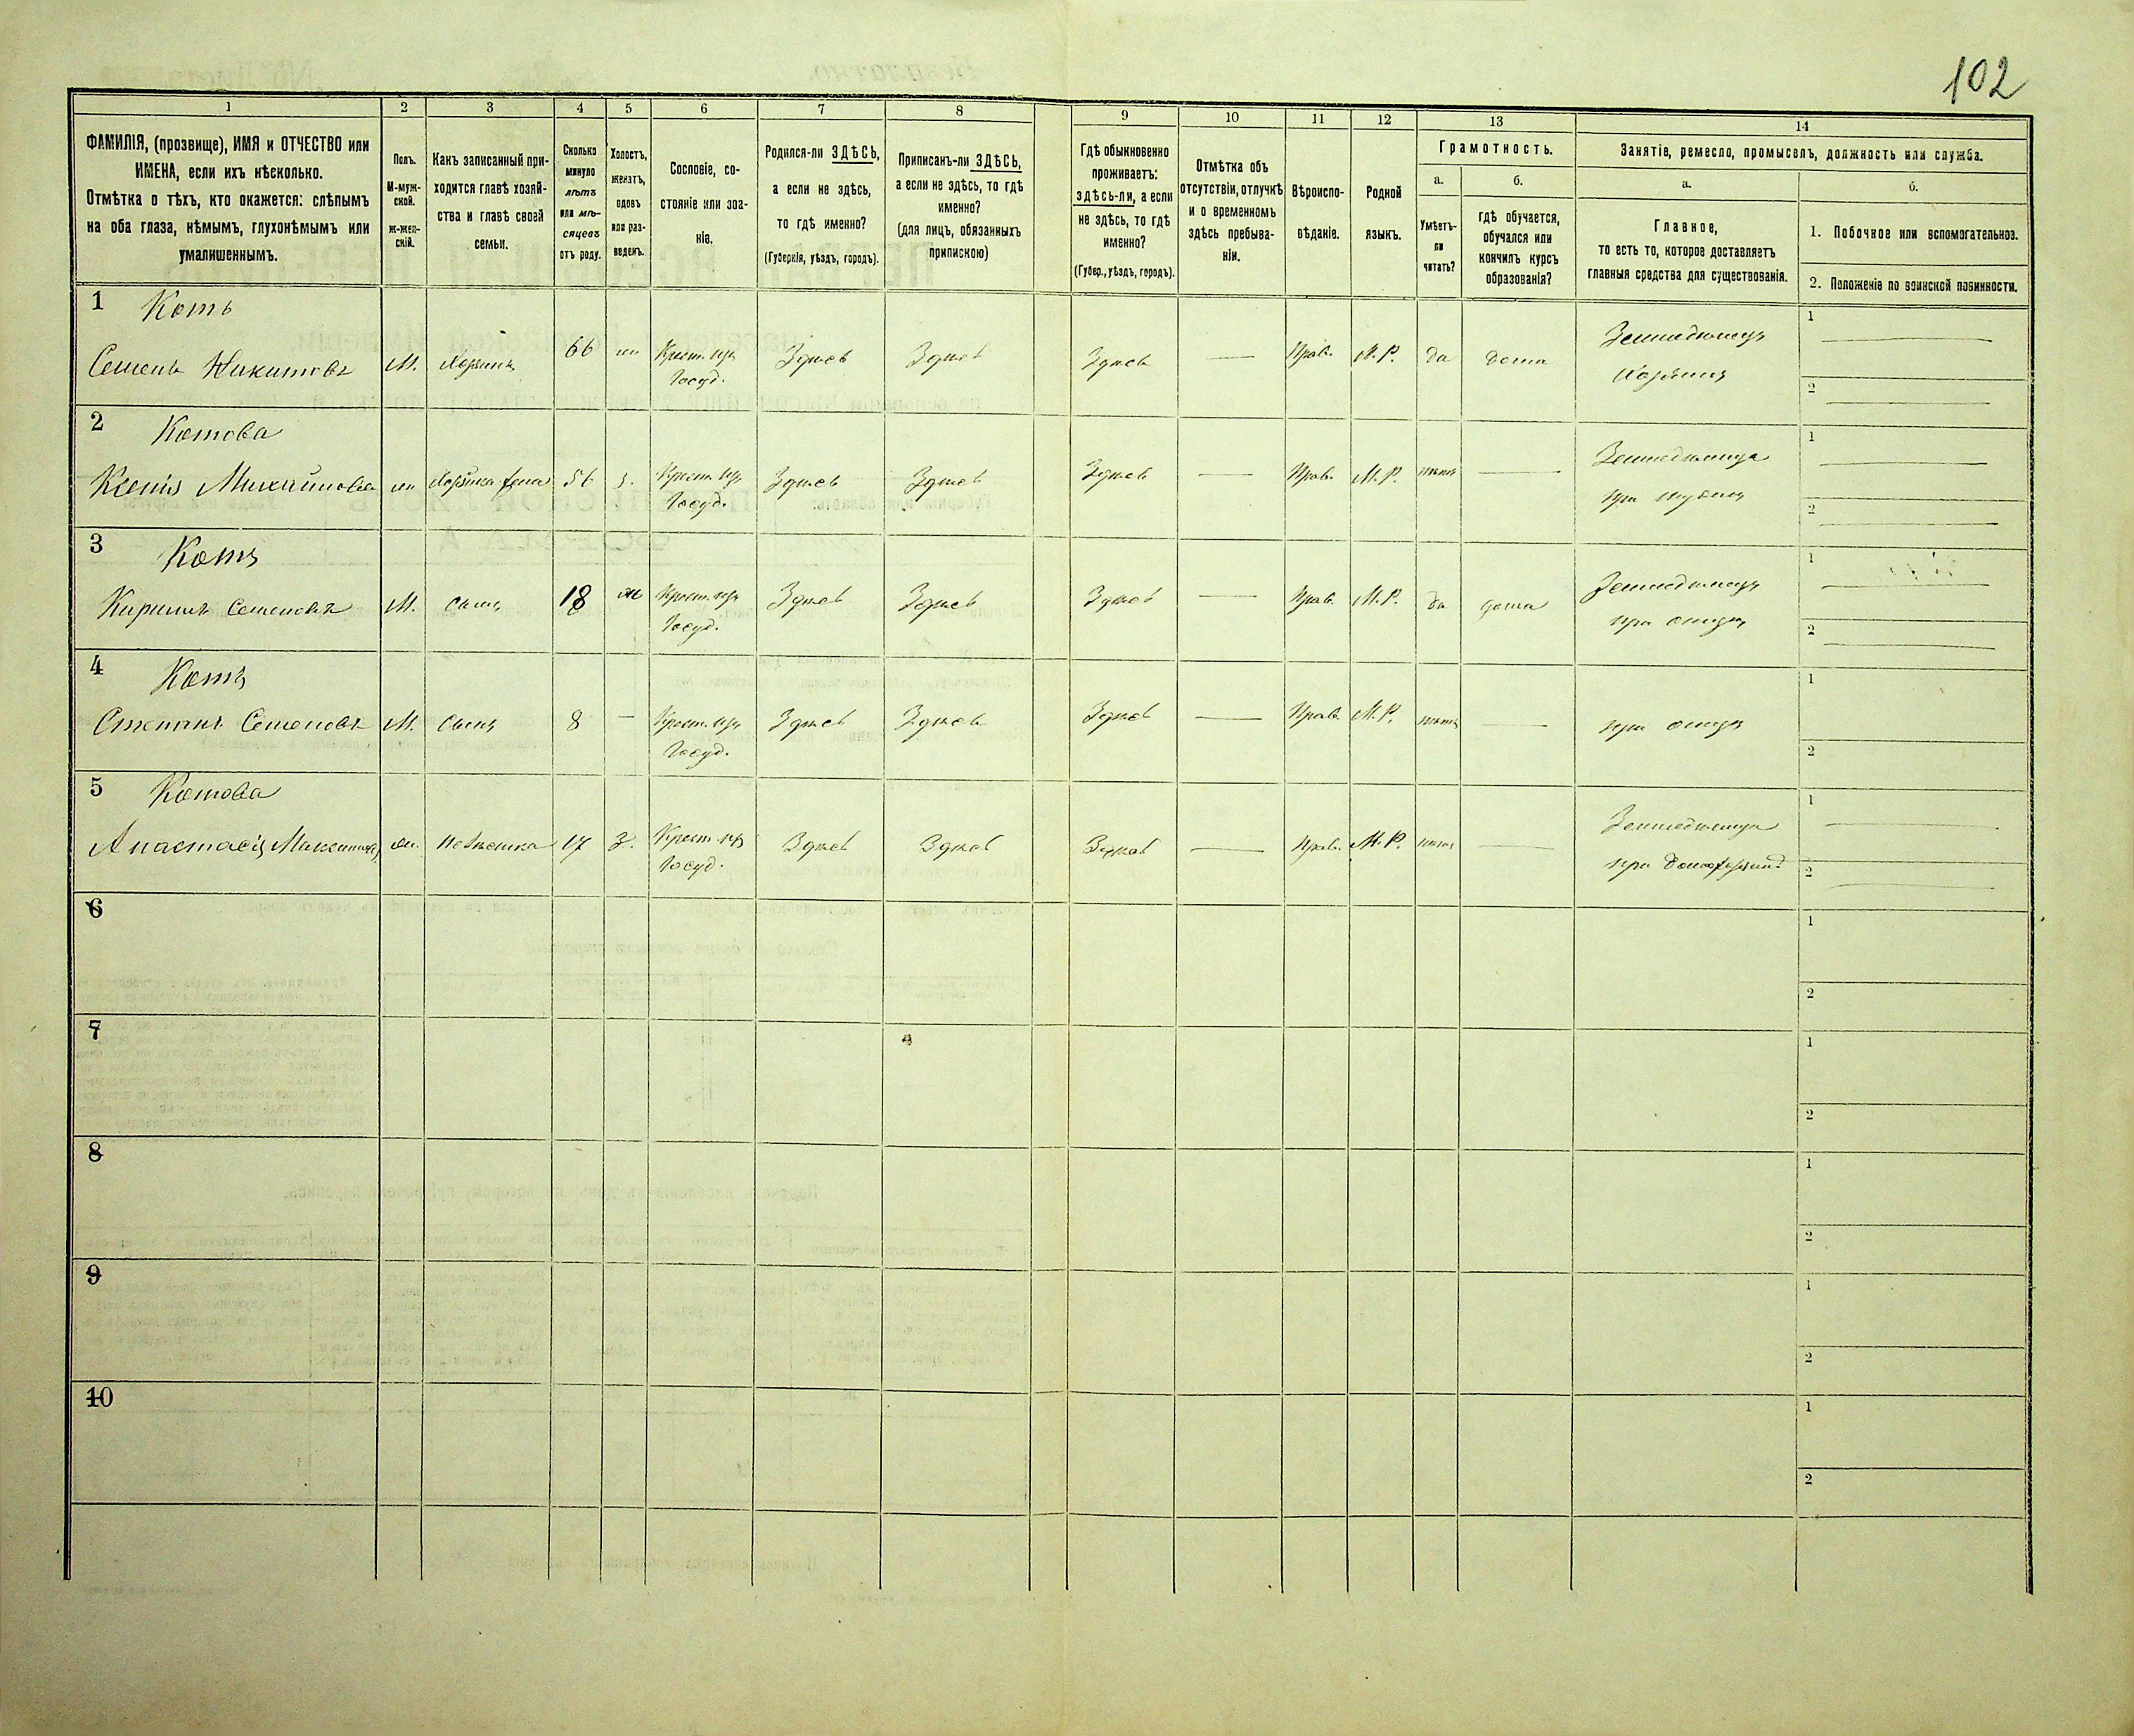 102
1 2 3 4 5 6 7 8 9 10 11 12 13 14
ФАМИЛІЯ, (прозвище), ИМЯ и ОТЧЕСТВО или
ИМЕНА, если ихъ нѣсколько.
Отмѣтка о тѣхъ, кто окажется: слѣпымъ
на оба глаза, нѣмымъ, глухонѣмымъ или
умалишеннымъ.
Полъ.
М-муж-
ской.
ж-жен-
скій.
Какъ записанный при-
ходится главѣ хозяй-
ства и главѣ своей
семьи.
Сколько
минуло
лѣтъ
или мѣ-
сяцевъ
отъ роду.
Холостъ,
женатъ,
вдовъ
или раз-
веденъ.
Сословіе, со-
стояніе или зва-
ніе.
Родился-ли ЗДѢСЬ,
а если не здѣсь,
то гдѣ именно?
(Губернія, уѣздъ, городъ).
Приписанъ-ли ЗДѢСЬ,
а если не здѣсь, то гдѣ
именно?
(для лицъ, обязанныхъ
припискою)
Гдѣ обыкновенно
проживаетъ:
здѣсь-ли, а если
не здѣсь, то гдѣ
именно?
(Губер., уѣздъ, городъ).
Отмѣтка объ
отсутствіи, отлучкѣ
и о временномъ
здѣсь пребыва-
ніи.
Вѣроиспо-
вѣданіе.
Родной
языкъ.
Грамотность.
а.
Умѣетъ-
ли
читать?
б.
гдѣ обучается,
обучался или
кончилъ курсъ
образованія?
Занятіе, ремесло, промыселъ, должность или служба.
а.
Главное,
то есть то, которое доставляетъ
главныя средства для существованія.
б.
1. Побочное или вспомогательное.
2. Положеніе по воинской повинности.
1 Котъ
Семенъ Никитовъ М. Хозяинъ 66 Крест. изъ Госуд. Здѣсь Здѣсь Здѣсь — Прав. М.Р. да дома Земледѣлецъ Хозяинъ 1 — 2 —
2 Котова
Ксенія Михайловна ж Хозяина жена 56 з. Крест. изъ Госуд. Здѣсь Здѣсь Здѣсь — Прав. М.Р. нѣтъ — Земледѣлица при мужѣ 1 — 2 —
3 Котъ
Кириллъ Семеновъ М. сынъ 18 ж Крест. изъ Госуд. Здѣсь Здѣсь Здѣсь — Прав. М.Р. да дома Земледѣлецъ при отцѣ 1 — 2 —
4 Котъ
Степанъ Семеновъ М. сынъ 8 — Крест. изъ Госуд. Здѣсь Здѣсь Здѣсь — Прав. М.Р. нѣтъ — при отцѣ 1 2
5 Котова
Анастасія ж. Невѣстка 17 З. Крест. изъ Госуд. Здѣсь Здѣсь Здѣсь — Прав. М.Р. нѣтъ — Земледѣлица при 1 — 2 —
6 1 2
7 1 2
8 1 2
9 1 2
10 1 2